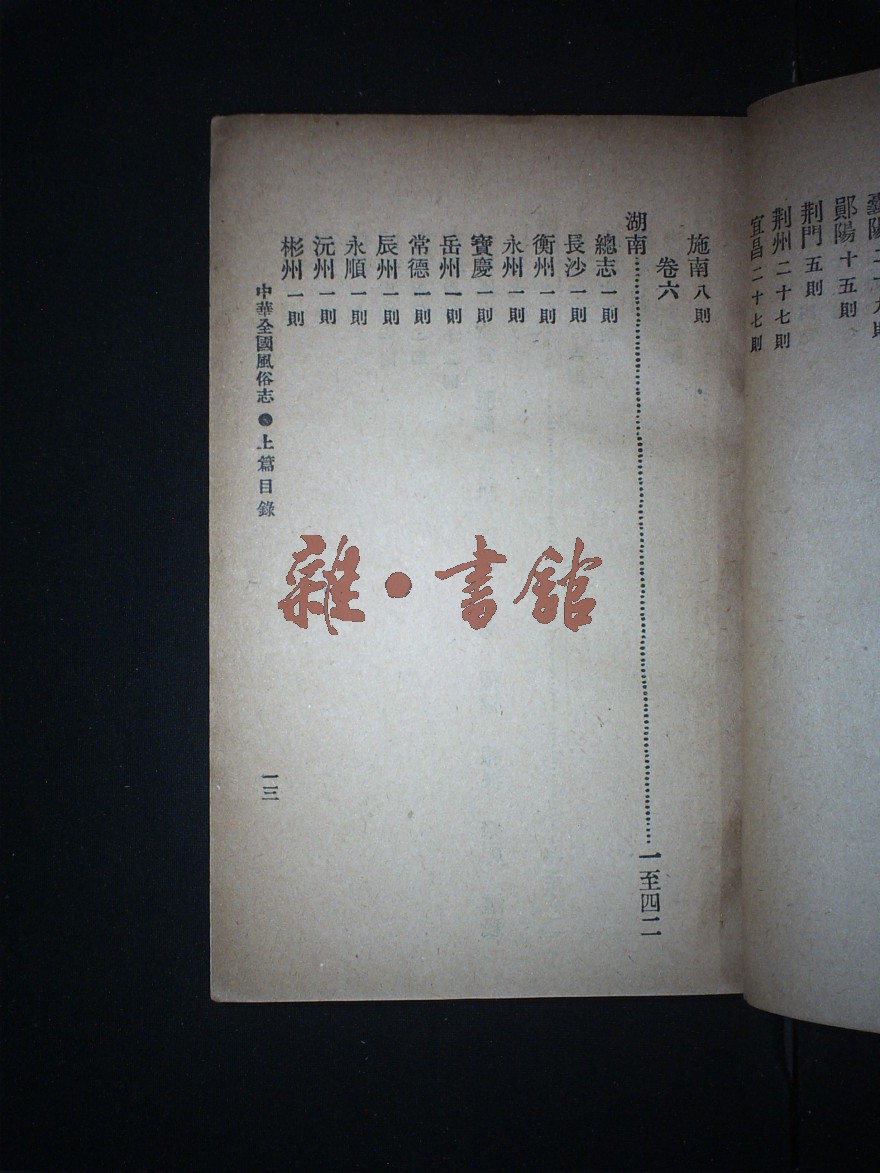 鄖陽十五則
荆門五則
荆州二十七則
宜昌二十七則
施南八則
卷六
湖南……一至四二
總志一則
長沙一則
衡州一則
永州一則
寶慶一則
岳州一則
常德一則
辰州一則
永順一則
沅州一則
彬州一則
中華全國風俗志 ● 上篇目錄
一三
雜·書館